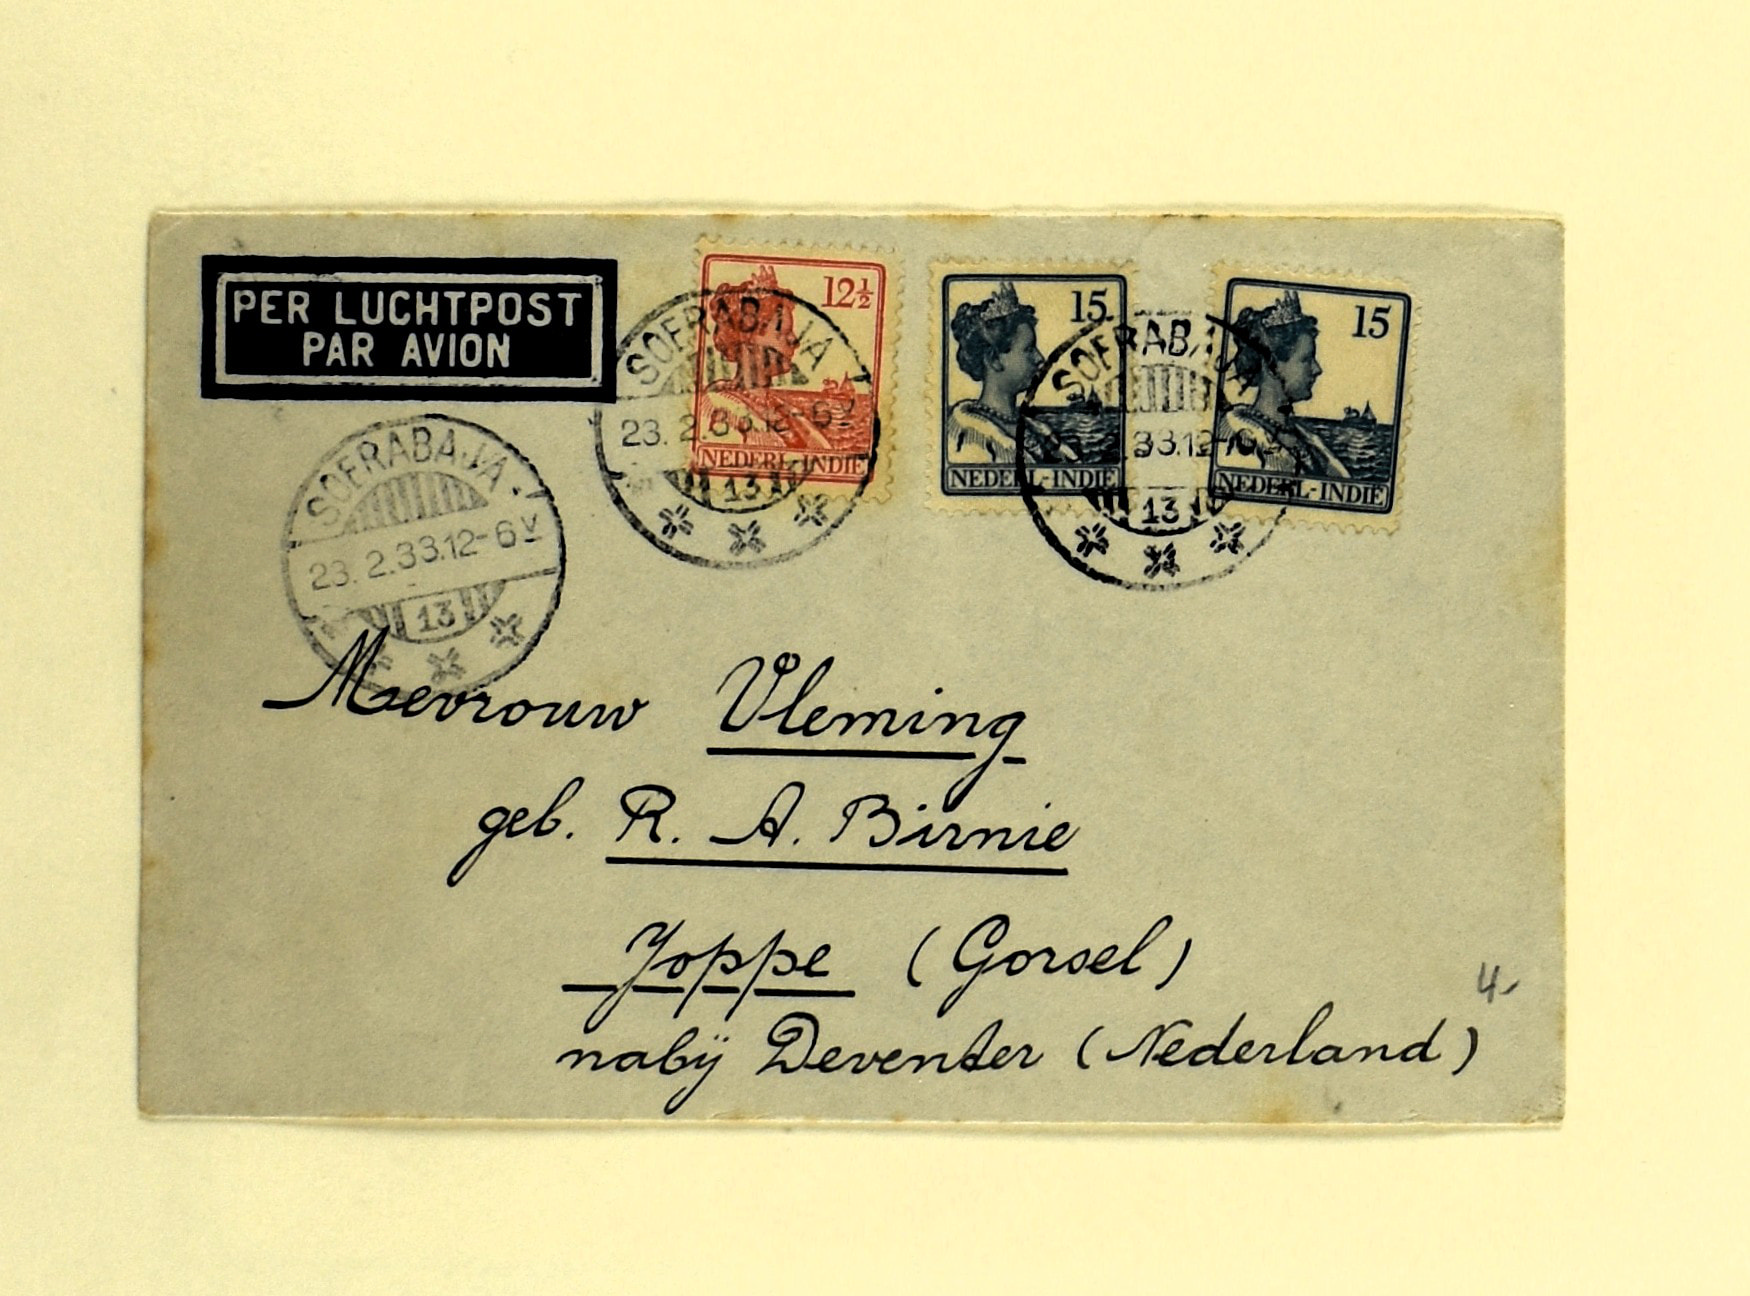 PER LUCHTPOST
PAR AVION
12½
NEDERL-INDIË
15
NEDERL-INDIË
15
NEDERL-INDIË
SOERABAJA
23.2.33.12-6V
13
SOERABAJA
23.2.33.12-6V
13
SOERABAJA
13
Mevrouw Vleming
geb. R. A. Birnie
Joppe (Gorsel)
nabij Deventer (Nederland)
4-